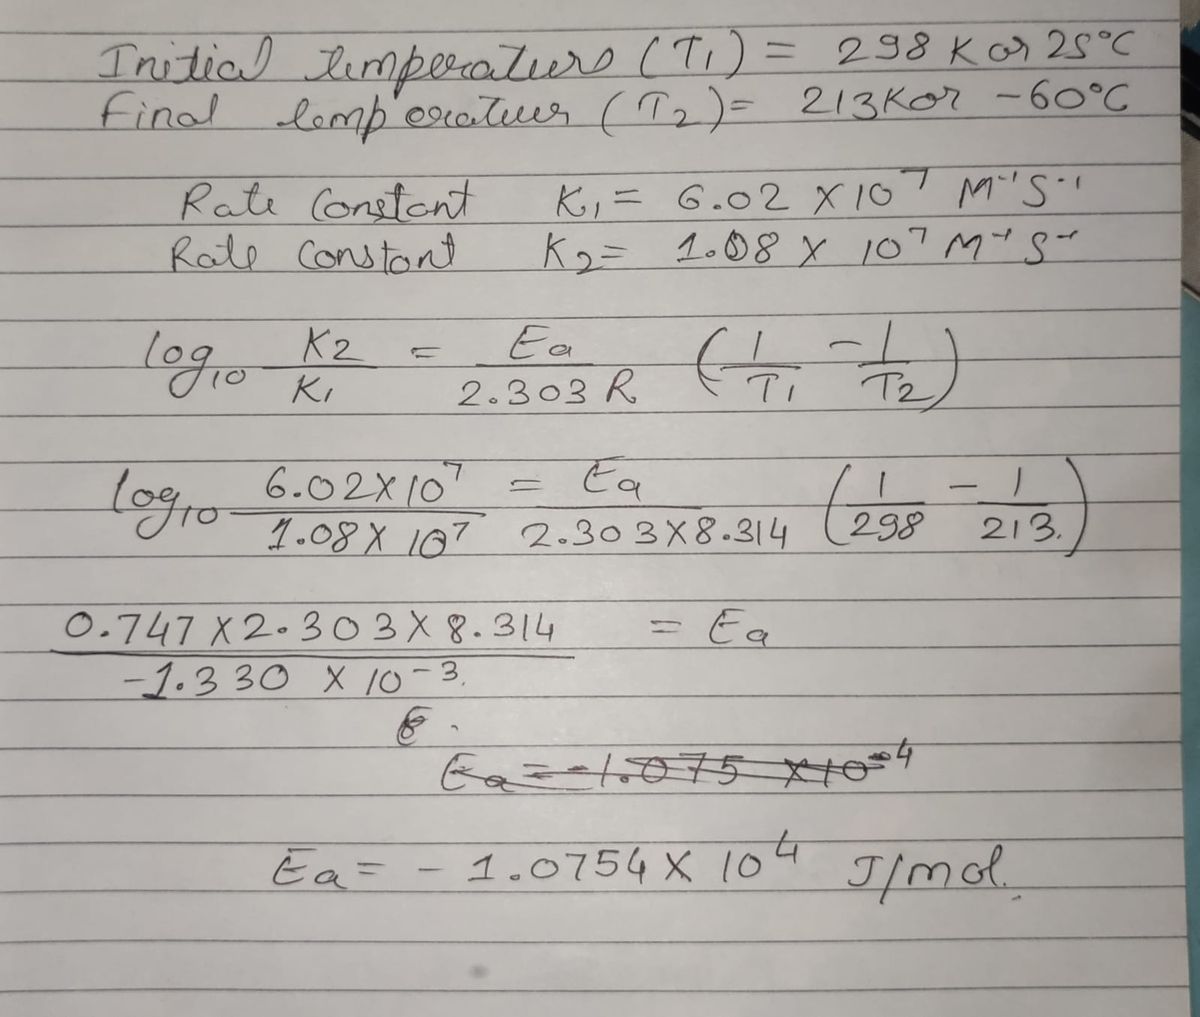 Initial temperature (T₁) = 298 K or 25°C
Final temperature (T₂) = 213K or -60°C
Rate Constant K₁ = 6.02 × 10⁷ M⁻¹ S⁻¹
Rate Constant K₂ = 1.08 × 10⁷ M⁻¹ S⁻¹
log₁₀ K₂/K₁ = Ea/2.303 R (1/T₁ - 1/T₂)
log₁₀ 6.02×10⁷/1.08 × 10⁷ = Ea/2.303×8.314 (1/298 - 1/213.)
0.747 × 2.303 × 8.314/-1.330 × 10⁻³. = Ea
Ea = -1.075 ×10⁻⁴
Ea = - 1.0754 × 10⁴ J/mol.